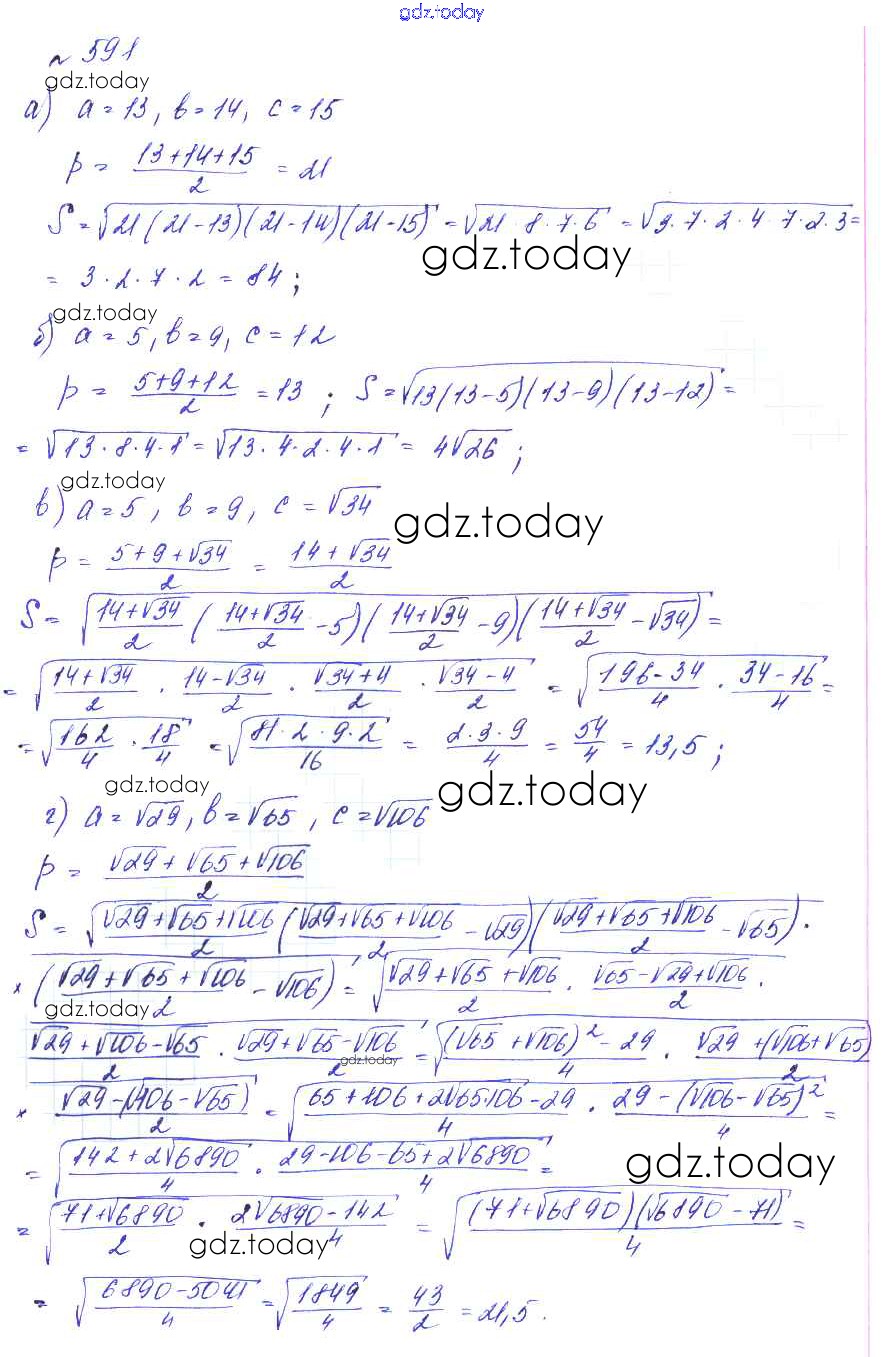 gdz.today
№ 591
gdz.today
а) a = 13, b = 14, c = 15
p = (13+14+15)/2 = 21
S = √(21(21-13)(21-14)(21-15)) = √(21·8·7·6) = √(3·7·2·4·7·2·3) =
= 3·2·7·2 = 84;
gdz.today
gdz.today
б) a = 5, b = 9, c = 12
p = (5+9+12)/2 = 13; S = √(13(13-5)(13-9)(13-12)) =
= √(13·8·4·1) = √(13·4·2·4·1) = 4√26;
gdz.today
в) a = 5, b = 9, c = √34
gdz.today
p = (5+9+√34)/2 = (14+√34)/2
S = √((14+√34)/2 ((14+√34)/2 - 5)((14+√34)/2 - 9)((14+√34)/2 - √34)) =
= √((14+√34)/2 · (14-√34)/2 · (√34+4)/2 · (√34-4)/2) = √((196-34)/4 · (34-16)/4) =
= √(162/4 · 18/4) = √((81·2·9·2)/16) = (2·3·9)/4 = 54/4 = 13,5;
gdz.today
gdz.today
г) a = √29, b = √65, c = √106
p = (√29+√65+√106)/2
S = √((√29+√65+√106)/2 ((√29+√65+√106)/2 - √29)((√29+√65+√106)/2 - √65) ·
× ((√29+√65+√106)/2 - √106) = √((√29+√65+√106)/2 · (√65-√29+√106)/2 ·
gdz.today
(√29+√106-√65)/2 · (√29+√65-√106)/2 = √(((√65+√106)²-29)/4 · (√29+(√106+√65)/2
gdz.today
× (√29-(√106-√65))/2 = √((65+106+2√65·106-29)/4 · (29-(√106-√65)²)/4 =
= √((142+2√6890)/4 · (29-106-65+2√6890)/4 =
gdz.today
= √((71+√6890)/2 · (2√6890-142)/4 = √(((71+√6890)(√6890-71))/4) =
gdz.today
= √((6890-5041)/4) = √(1849/4) = 43/2 = 21,5.